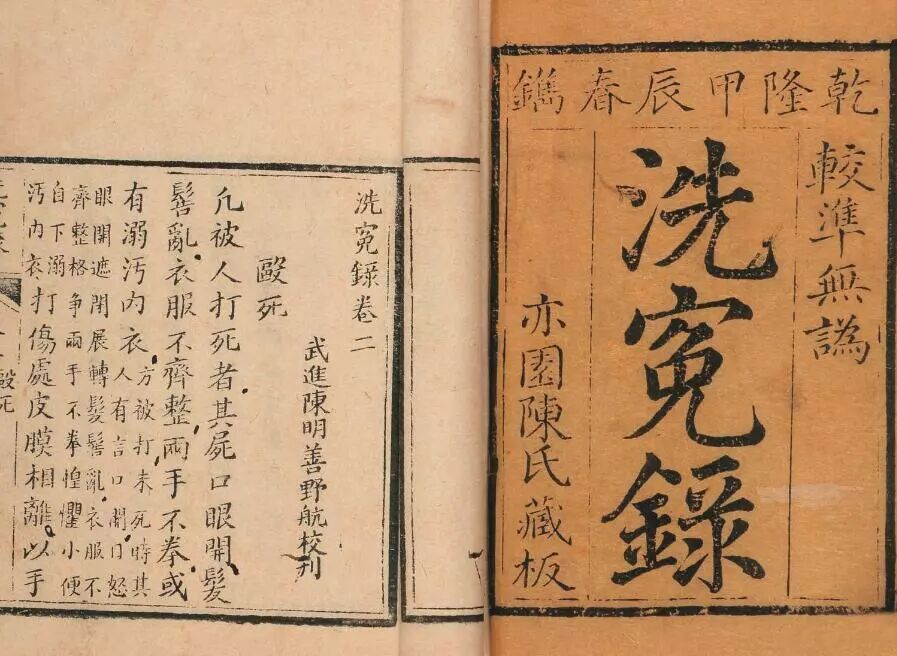 乾隆甲辰春鐫
較準無譌
洗寃錄
亦園陳氏藏板
洗寃錄卷二
武進陳明善野航校刊
毆死
凡被人打死者其屍口眼開髮
髻亂衣服不齊整兩手不拳或
有溺汚内衣方被打未死時其人有言口開目怒
眼開遮閉展轉髮髻亂衣服不
齊整格爭兩手不拳惶懼小便
自下溺汚内衣打傷處皮膜相離以手
毆死